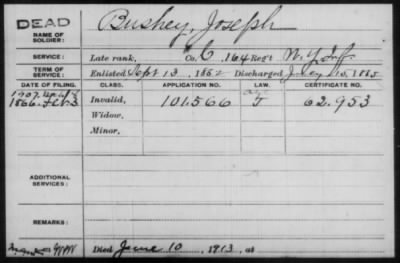 DEAD
NAME OF SOLDIER:
Bushey, Joseph
SERVICE:
Late rank, Co. C, 164 Reg't N.Y. Inf.
TERM OF SERVICE:
Enlisted Sept 13, 1862 Discharged July 15, 1865
DATE OF FILING. CLASS. APPLICATION NO. LAW. CERTIFICATE NO.
1907
1866. Feb. 3 Invalid, 101.566 62.953
Widow,
Minor,
ADDITIONAL SERVICES:
REMARKS:
Died June 10, 1913, at